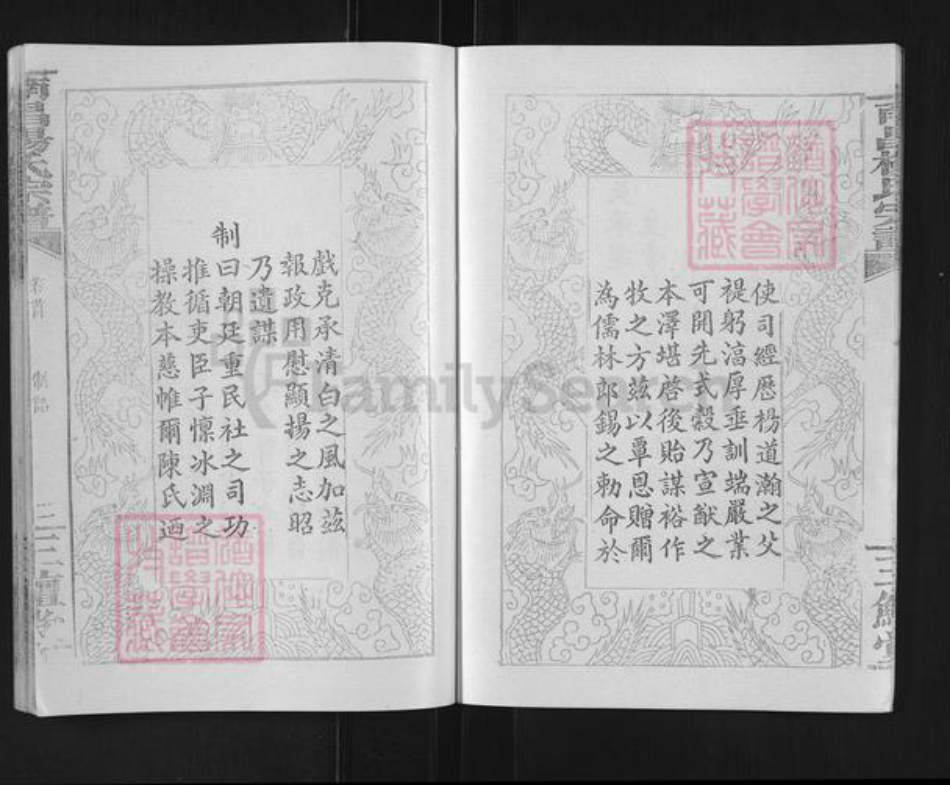 使司經歷楊道瀚之父
禔躬淳厚垂訓端嚴業
可開先式穀乃宣猷之
本澤堪啓後貽謀裕作
牧之方茲以覃恩贈爾
為儒林郎錫之勅命於
戲克承清白之風加茲
報政用慰顯揚之志昭
乃遺謀
制曰朝廷重民社之司功
推循吏臣子懍冰淵之
操教本慈幃爾陳氏迺
卷首
制誥
南昌楊氏宗譜
FamilySearch